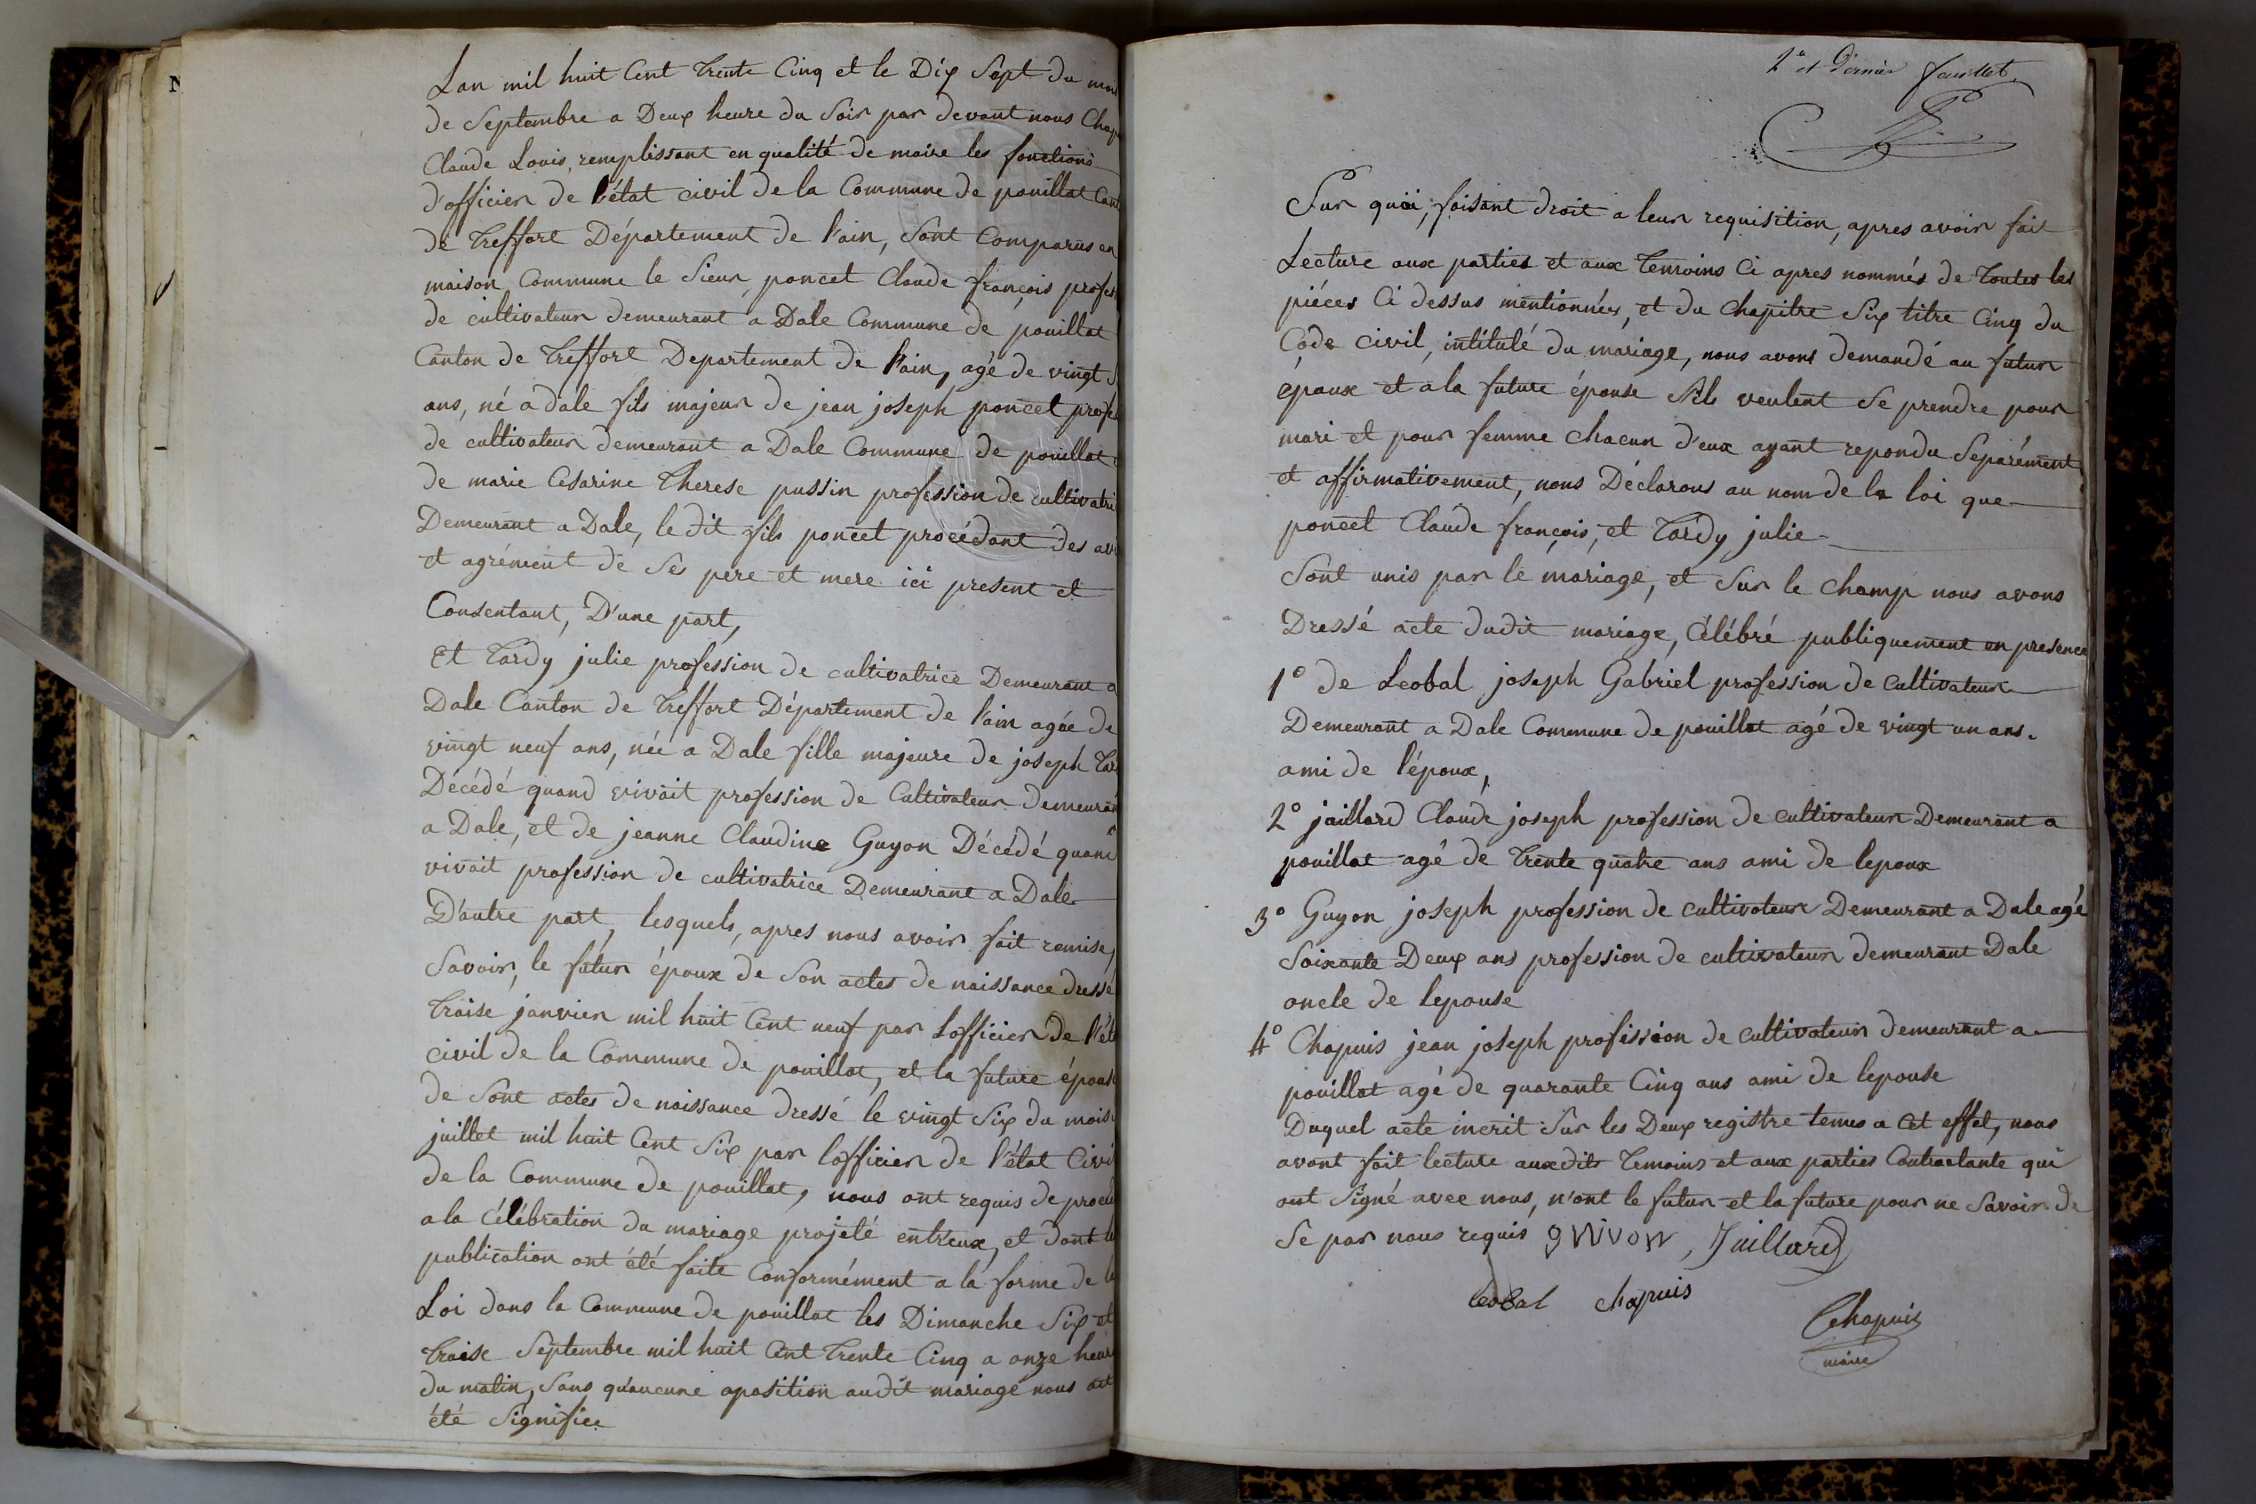 Lan mil huit Cent trente Cinq et le Dix Sept du mois
de Septembre a Deux heure du Soir par devant nous Chap
Claude Louis, remplissant en qualité de maire les fonctions
d'officier de l'état civil de la Commune de pouillat Cant
de treffort Département de l'ain, Sont Comparus en
maison Commune le Sieur, poncet Claude françois profes
de cultivateur demeurant a Dale Commune de pouillat
Canton de treffort Departement de l'ain, agé de vingt S
ans, né a dale fils majeur de jean joseph poncet profes
de cultivateur demeurant a Dale Commune de pouillat
de marie Césarine therese pussin profession de cultivatri
Demeurant a Dale, le dit fils poncet procédant des avi
et agrément de Ses pere et mere ici present et
Consentant, D'une part,
Et tardy julie profession de cultivatrice Demeurant a
Dale Canton de treffort Département de l'ain agée de
vingt neuf ans, née a Dale fille majeure de joseph tar
Décédé quand vivait profession de Cultivateur demeuran
a Dale, et de jeanne Claudine Guyon Décédé quand
vivait profession de cultivatrice Demeurant a Dale
D'autre part, lesquels, apres nous avoir fait remise,
Savoir, le futur époux de Son actes de naissance dressé
traise janvier mil huit Cent neuf par Lofficier de l'éta
civil de la Commune de pouillat, et la future épouse
de Sont actes de naissance dressé le vingt Six du mois
juillet mil huit Cent Six par lofficier de l'état Civi
de la Commune de pouillat, nous ont requis de procé
a la Célébration du mariage projeté entr'eux, et dont
publication ont été faite Conformément a la forme de la
Loi dans la Commune de pouillat les Dimanche Six et
traise Septembre mil huit Cent trente Cinq a onze heure
du matin, Sans qu'aucune oposition audit mariage nous ait
été Signifiee
2e et dernier feuillet
Sur quoi, faisant droit a leur requisition, apres avoir fait
Lecture aux parties et aux temoins Ci apres nommés de toutes les
piéces Ci dessus mentionnées, et du chapitre Six titre Cinq du
Code civil, intitulé du mariage, nous avons demandé au futur
époux et a la future épouse S'ils veulent Se prendre pour
mari et pour femme chacun d'eux ayant repondu Séparément
et affirmativement, nous Déclarons au nom de la loi que
poncet Claude françois, et tardy julie
Sont unis par le mariage, et Sur le champ nous avons
Dressé acte dudit mariage, Célébré publiquement en presence
1° de Leobal joseph Gabriel profession de Cultivateur
Demeurant a Dale Commune de pouillat agé de vingt un ans.
ami de l'époux,
2° jaillard Claude joseph profession de cultivateur Demeurant a
pouillat agé de trente quatre ans ami de lepoux
3° Guyon joseph profession de cultivateur Demeurant a Dale agé
Soixante Deux ans profession de cultivateur demeurant Dale
oncle de lepouse
4° Chapuis jean joseph profission de cultivateur demeurant a
pouillat agé de quarante Cinq ans ami de lepouse
Duquel acte incrit Sur les Deux registre tenus a cet effet, nous
avont fait lecture auxdits temoins et aux parties Contractante qui
ont Signé avec nous, n'ont le futur et la future pour ne Savoir de
Se par nous requis guivon, Juillard
leobal chapuis
Chapuis
maire